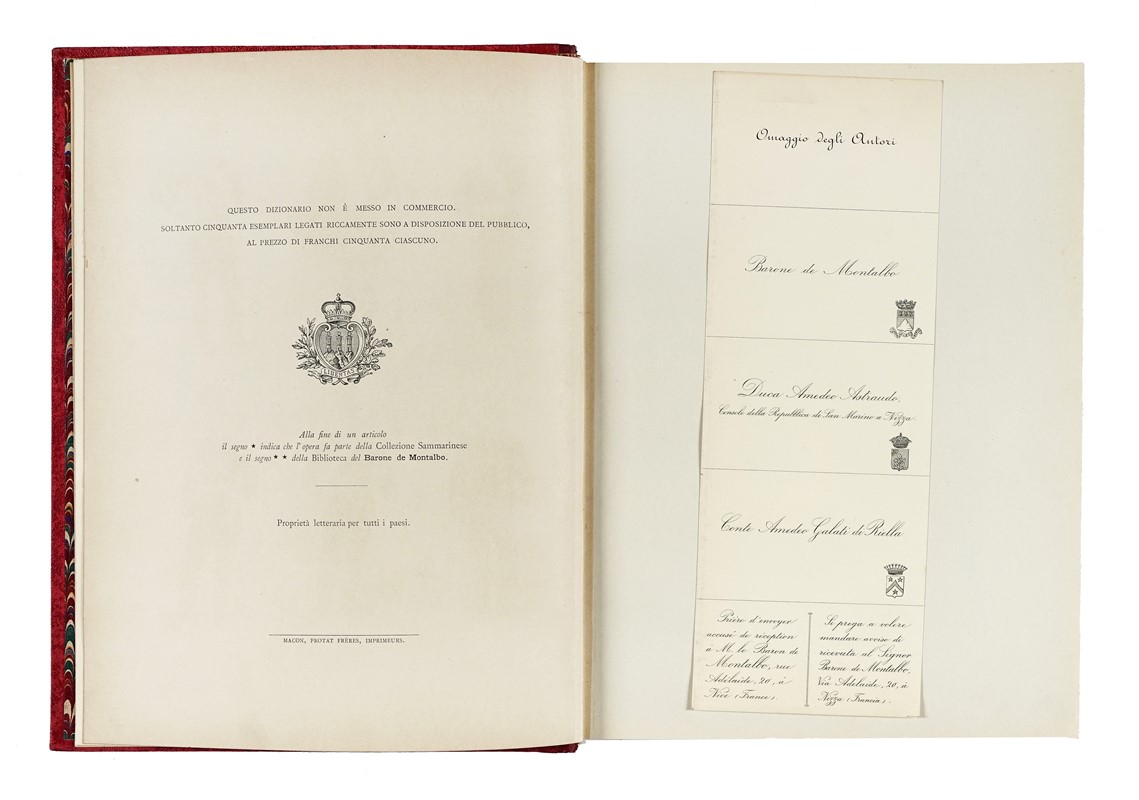 QUESTO DIZIONARIO NON È MESSO IN COMMERCIO.
SOLTANTO CINQUANTA ESEMPLARI LEGATI RICCAMENTE SONO A DISPOSIZIONE DEL PUBBLICO,
AL PREZZO DI FRANCHI CINQUANTA CIASCUNO.
LIBERTAS
Alla fine di un articolo
il segno ★ indica che l'opera fa parte della Collezione Sammarinese
e il segno ★ ★ della Biblioteca del Barone de Montalbo.
Proprietà letteraria per tutti i paesi.
MACON, PROTAT FRÈRES, IMPRIMEURS.
Omaggio degli Autori
Barone de Montalbo
Duca Amedeo Astraudo,
Console della Repubblica di San Marino a Nizza.
Conte Amedeo Galati di Riella
Prière d'envoyer
accusé de réception
à M. le Baron de
Montalbo, rue
Adélaïde, 20, à
Nice (France).
Si prega a volere
mandare avviso di
ricevuta al Signor
Barone de Montalbo,
Via Adelaide, 20, a
Nizza (Francia).